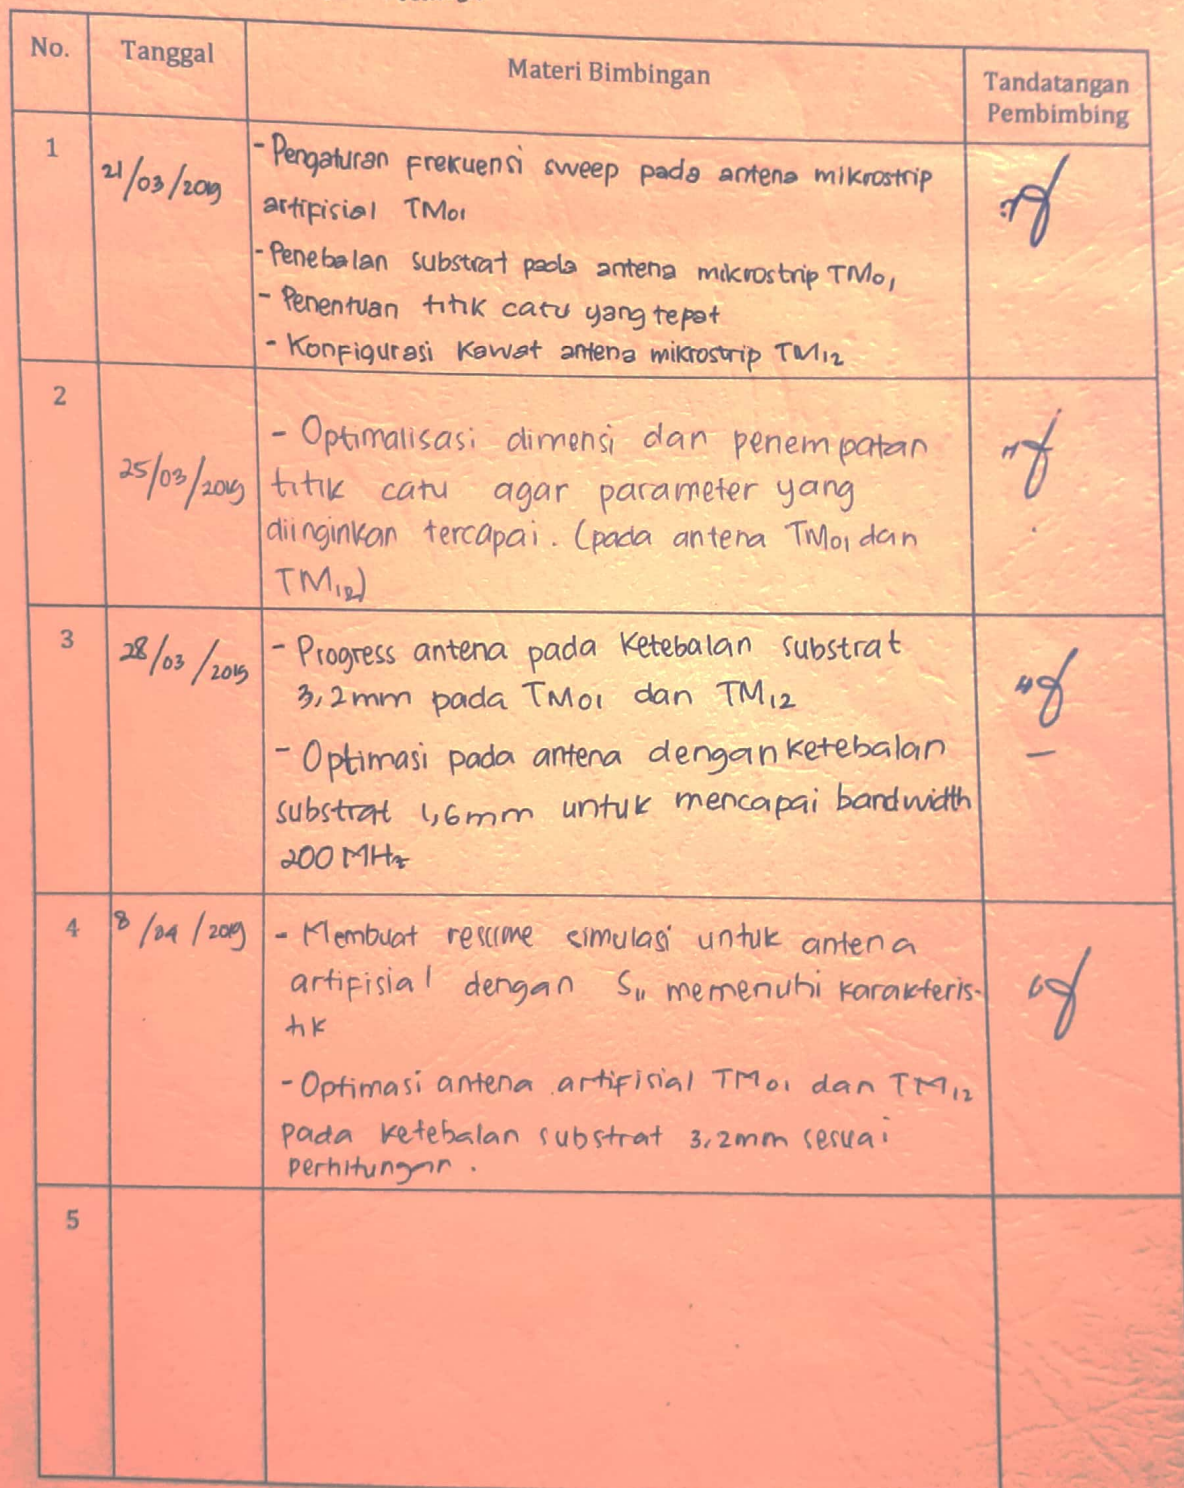 No. Tanggal Materi Bimbingan Tandatangan
Pembimbing
1
21/03/2019
- Pengaturan Frekuensi sweep pada antena mikrostrip
artifisial TM01
- Penebalan substrat pada antena mikrostrip TM01
- Penentuan titik catu yang tepat
- Konfigurasi Kawat antena mikrostrip TM12
2
25/03/2019
- Optimalisasi dimensi dan penempatan
titik catu agar parameter yang
diinginkan tercapai. (pada antena TM01 dan
TM12)
3
28/03/2019
- Progress antena pada Ketebalan substrat
3,2mm pada TM01 dan TM12
- Optimasi pada antena dengan ketebalan
substrat 1,6mm untuk mencapai bandwidth
200 MHz
4
8/04/2019
- Membuat resume simulasi untuk antena
artifisial dengan S11 memenuhi karakteris-
tik
- Optimasi antena artifisial TM01 dan TM12
pada ketebalan substrat 3,2mm sesuai
perhitungan.
5